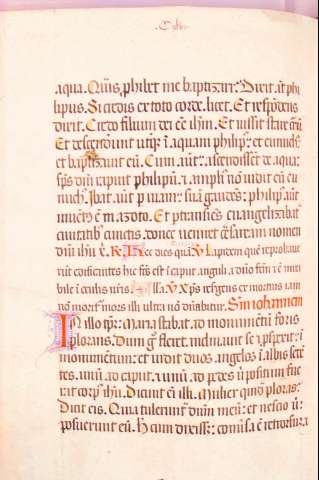 aqua. Quis phibet me baptizari: Dixit aūt phi
lippus. Si credis ex toto corde. licet. Et respōdens
dixit. Credo filium dei eē ihm. Et iussit stare currū
Et descenderunt utrqꝫ ī aquam philipp' et eunuch'
et baptizauit eū. Cum aūt ascendisset de aqua:
sps dni rapuit philippū. ⁊ ampli' nō uidit eū eu
nuch'. Ibat aūt p uiam suā gaudēs. philipp' aūt
inuent' ē in azoto. Et ptransiēs euangelizabat
ciuitatib' cunctis. donec ueniret cesaream nomen
dni ihu xi. R. Hec dies quā V. Lapidem quē reprobaue
rūt edificantes hic fcs est ī caput anguli. a dno fcm ē ⁊ ē mira
bile ī oculis nris. alla V. xps resurgens ex mortuis iam
nō moritur mors illi ultra nō dnabitur. Sm iohannem
In illo tpr. Maria stabat ad monumentū foris
plorans. Dum g° fleret. inclinauit se ⁊ pspexit ī
monumentum: et uidit duos angelos ī albis sede
tes. unū ad caput. ⁊ unū ad pedes ubi positum fue
rat corp' ihu. Dicunt ei illi. Mulier quid ploras:
Dicit eis. Quia tulerunt dnm meū: et nescio ubi
posuerunt eū. Hec cum dixisset: conuersa ē retrorsū. ⁊